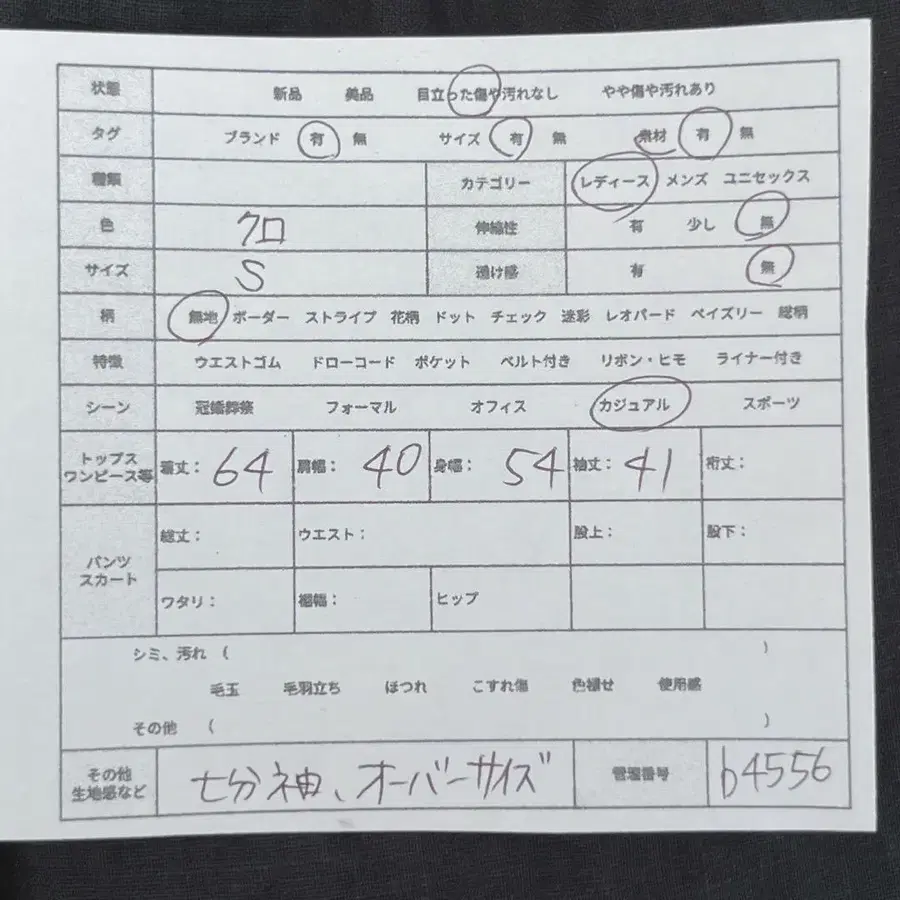 状態 新品 美品 目立った傷や汚れなし やや傷や汚れあり
タグ ブランド 有 無 サイズ 有 無 素材 有 無
種類 カテゴリー レディース メンズ ユニセックス
色 クロ 伸縮性 有 少し 無
サイズ S 透け感 有 無
柄 無地 ボーダー ストライプ 花柄 ドット チェック 迷彩 レオパード ペイズリー 総柄
特徴 ウエストゴム ドローコード ポケット ベルト付き リボン・ヒモ ライナー付き
シーン 冠婚葬祭 フォーマル オフィス カジュアル スポーツ
トップス
ワンピース等 着丈: 64 肩幅: 40 身幅: 54 袖丈: 41 裄丈:
パンツ
スカート 総丈: ウエスト: 股上: 股下:
ワタリ: 裾幅: ヒップ
シミ、汚れ ( )
毛玉 毛羽立ち ほつれ こすれ傷 色褪せ 使用感
その他 ( )
その他
生地感など 七分袖、オーバーサイズ 管理番号 b4556